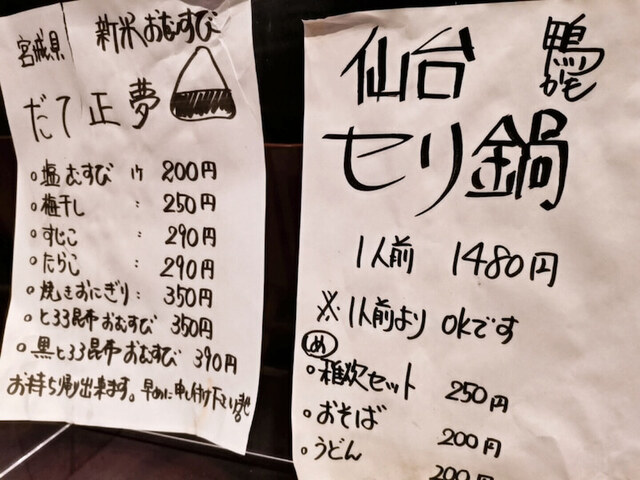 宮城県
新米おむすび
だて正夢
○塩むすび 1ケ 200円
○梅干し : 250円
○すじこ : 290円
○たらこ : 290円
○焼きおにぎり: 350円
○とろろ昆布おむすび 350円
○黒とろろ昆布おむすび 390円
お持ち帰り出来ます。早めに申し付け下さいませ
仙台
鴨
かも
セリ鍋
1人前 1480円
※1人前より okです
〆
○雑炊セット 250円
○おそば 200円
○うどん 200円